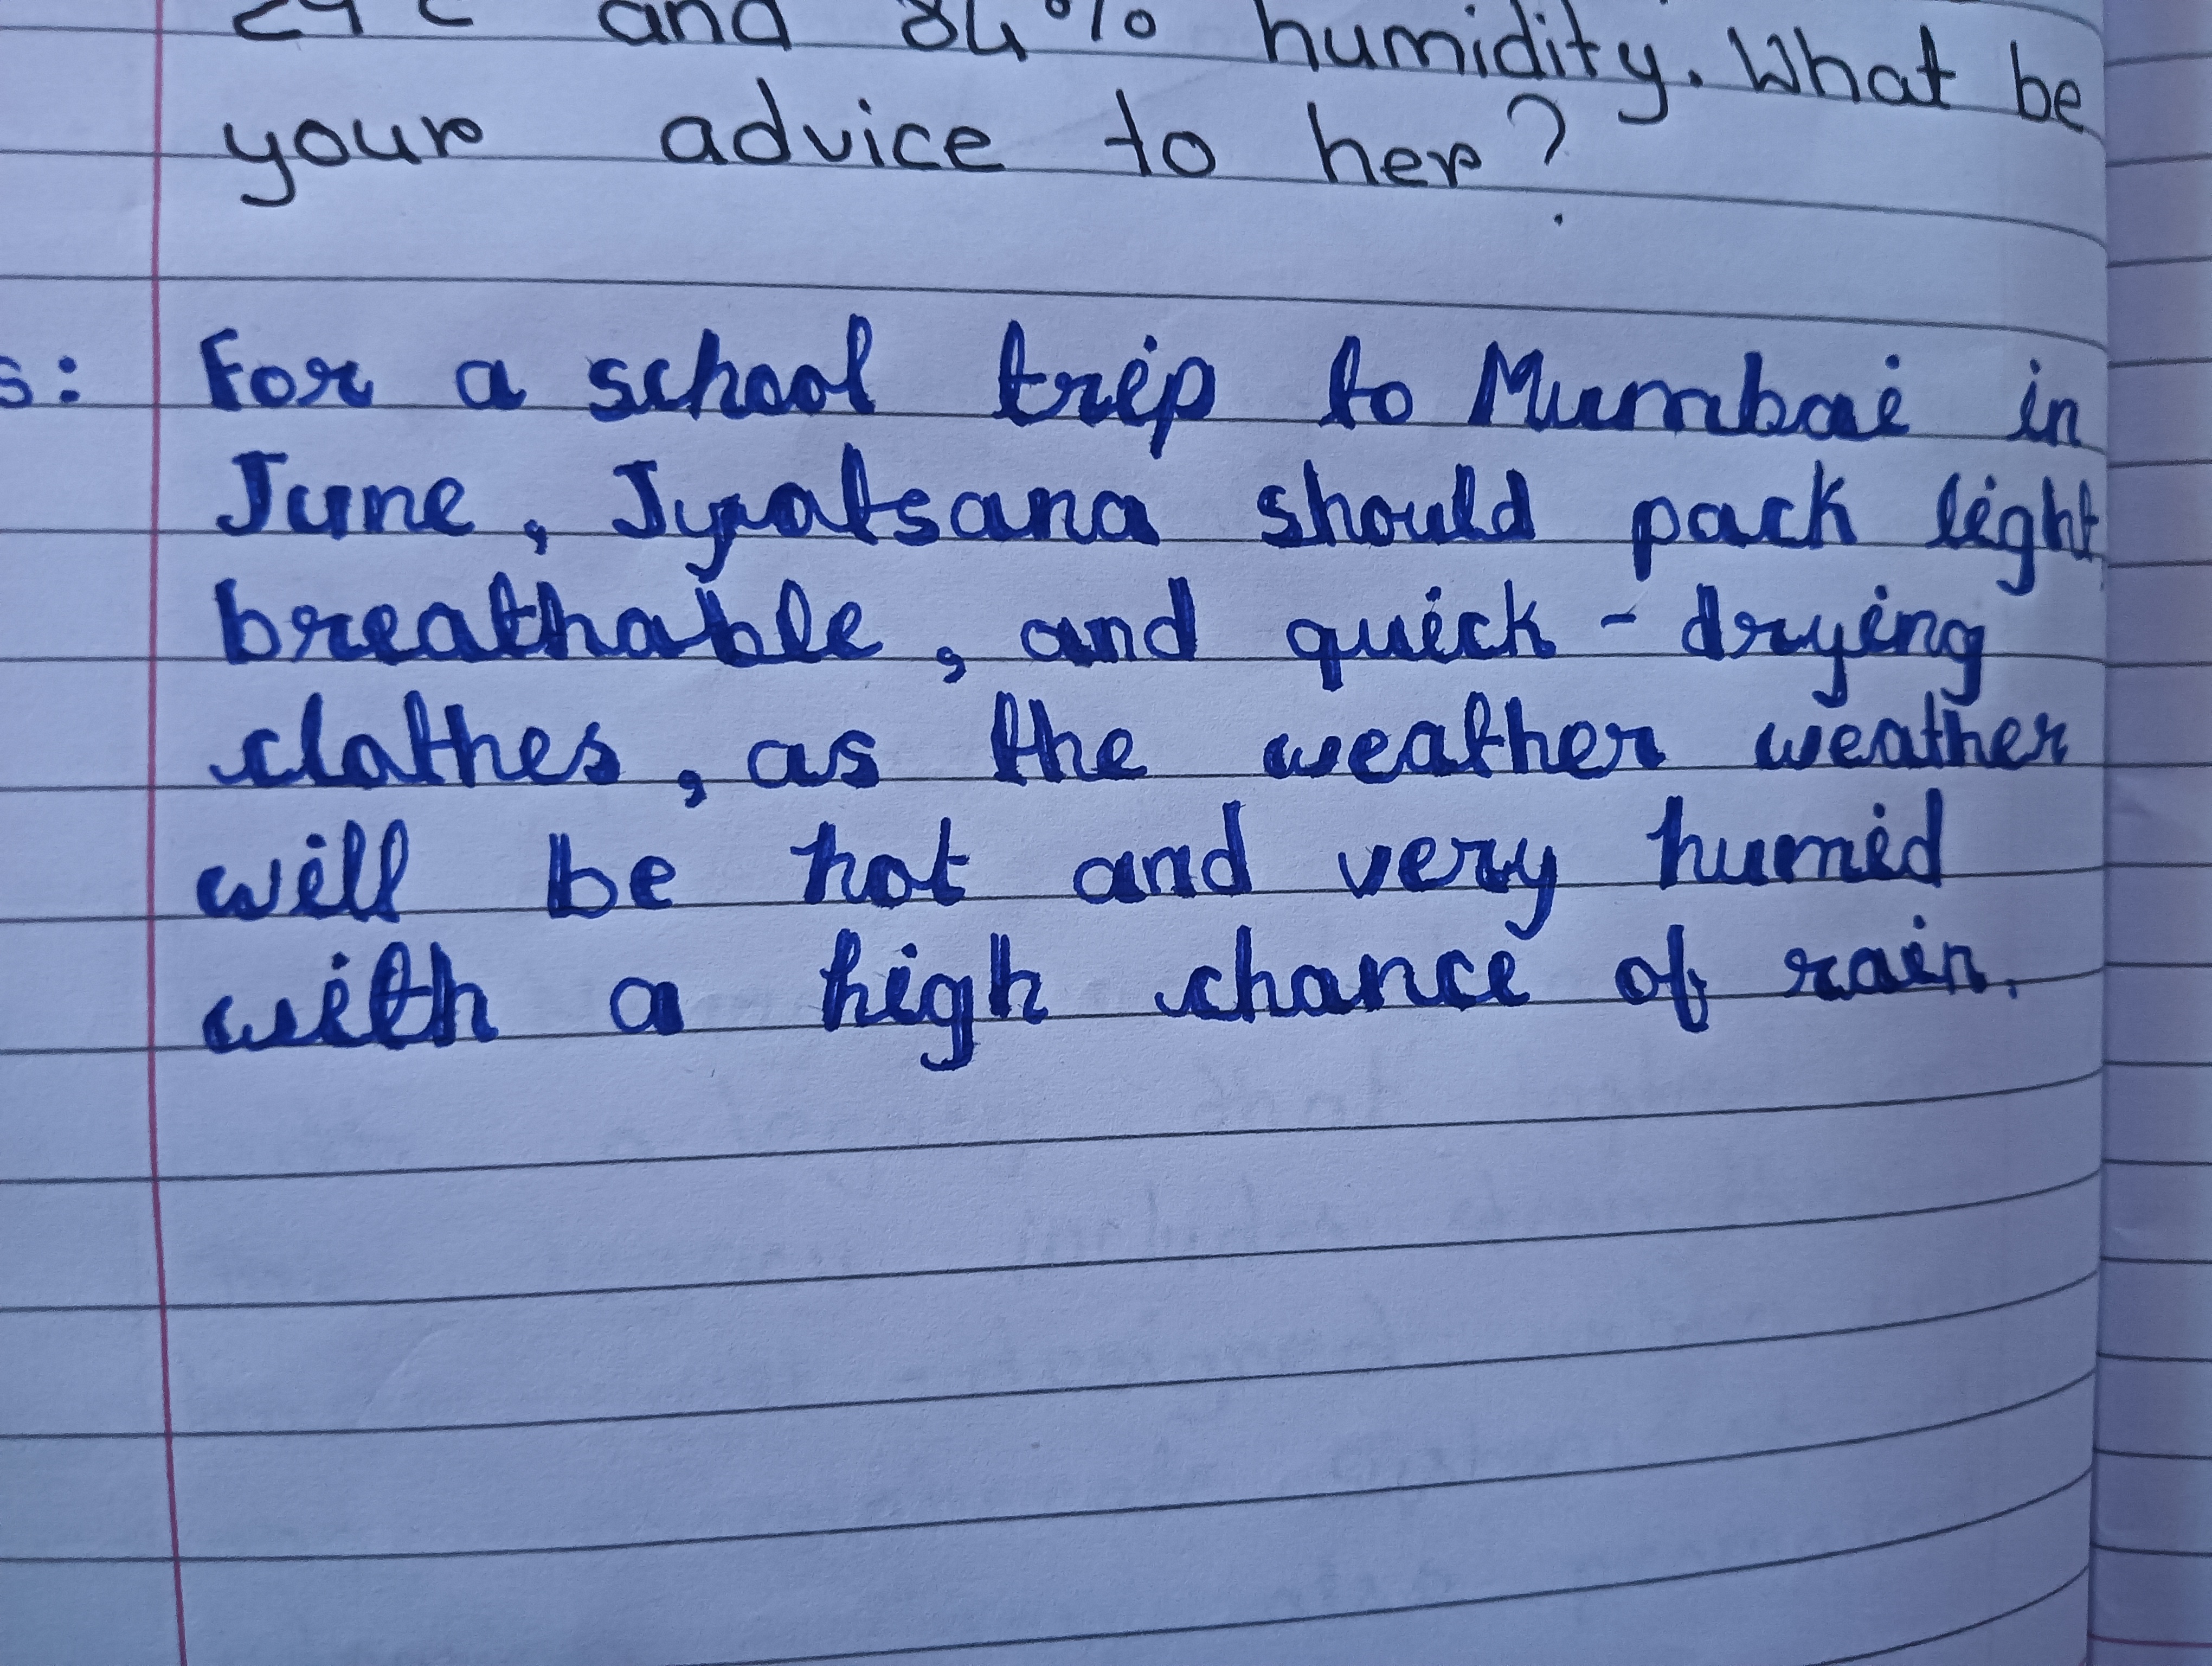 and 84% humidity. What be
your advice to her?
s: For a school trip to Mumbai in
June, Jyotsana should pack light
breathable, and quick - drying
clothes, as the weather weather
will be hot and very humid
with a high chance of rain.